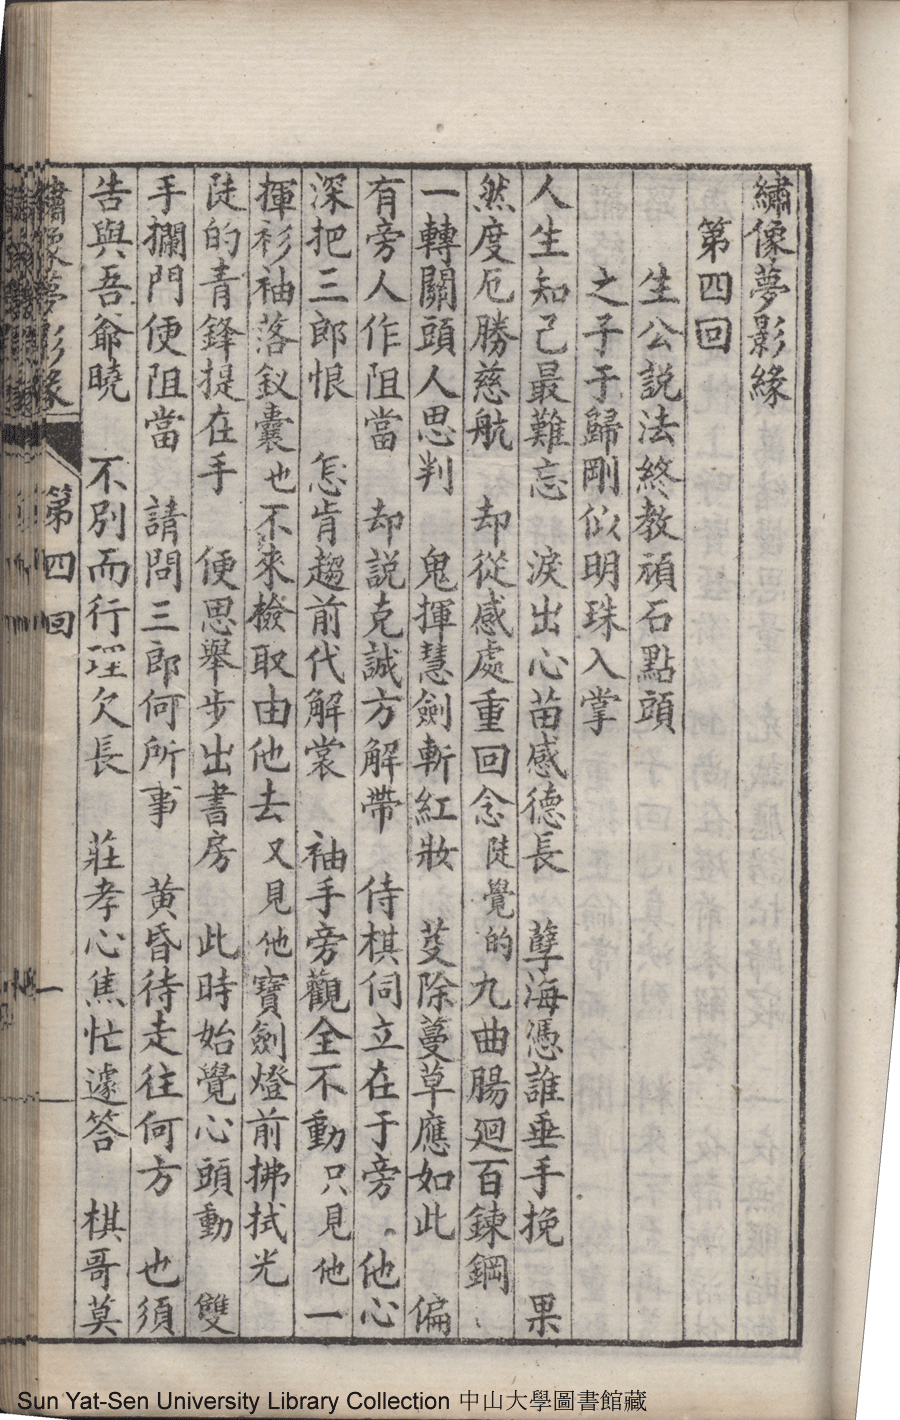 繡像夢影緣
第四回
生公說法終教頑石點頭
之子于歸剛似明珠入掌
人生知己最難忘 淚出心苗感德長 孽海憑誰垂手挽 果
然度厄勝慈航 却從感處重回念 陡覺的九曲腸廻百鍊鋼
一轉關頭人思判 鬼揮慧劍斬紅妝 芟除蔓草應如此 偏
有旁人作阻當 却說克誠方解帶 侍棋伺立在于旁 他心
深把三郎恨 怎肯趨前代解裳 袖手旁觀全不動 只見他一
揮衫袖落釵囊 也不來檢取由他去 又見他寶劍燈前拂拭光
陡的青鋒提在手 便思舉步出書房 此時始覺心頭動 雙
手攔門便阻當 請問三郎何所事 黃昏待走往何方 也須
告與吾爺曉 不別而行理欠長 莊孝心焦忙遽答 棋哥莫
繡像夢影緣 第四回 一
Sun Yat-Sen University Library Collection 中山大學圖書館藏